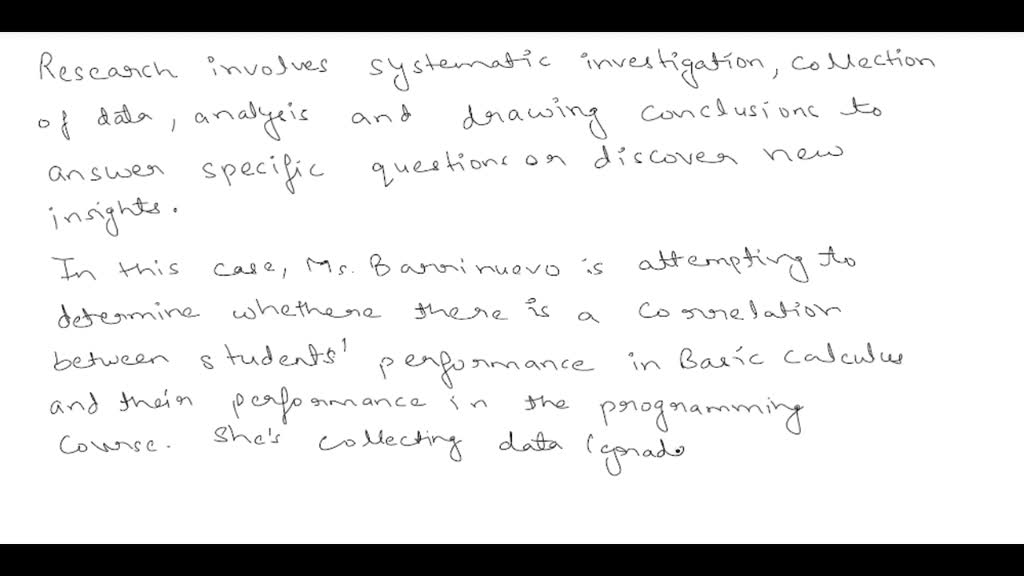 Research involves systematic investigation, collection
of data, analysis and drawing conclusions to
answer specific questions or discover new
insights.
In this case, Ms. Barrinuevo is attempting to
determine whethere there is a correlation
between students' performance in Basic calculus
and their performance in the programming
course. She's collecting data (grad